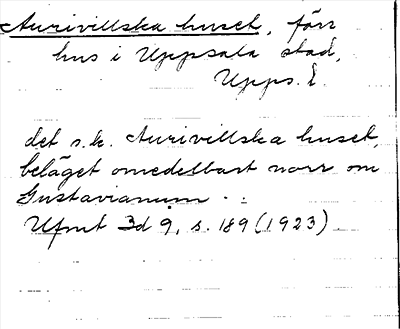 Aurivillska huset, förr
hus i Uppsala stad,
Upps. l.
det s.k. Aurivillska huset,
beläget omedelbart norr om
Gustavianum . .
Ufmt Bd 9, s. 189 (1923)